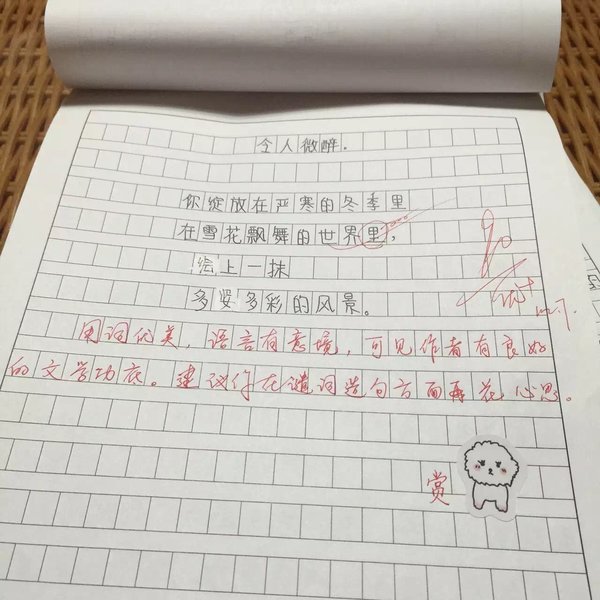 令人微醉。
你绽放在严寒的冬季里
在雪花飘舞的世界里，
绘上一抹
多姿多彩的风景。
90
优+
12.7.
用词优美，语言有意境，可见作者有良好
的文学功底。建议你在遣词造句方面再花心思。
赏